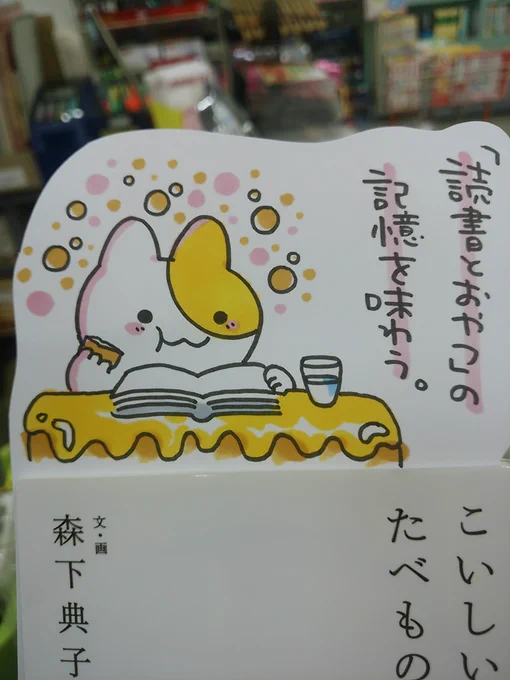 「読書とおやつの
記憶を味わう。
こいしい
たべもの
文・画
森下典子